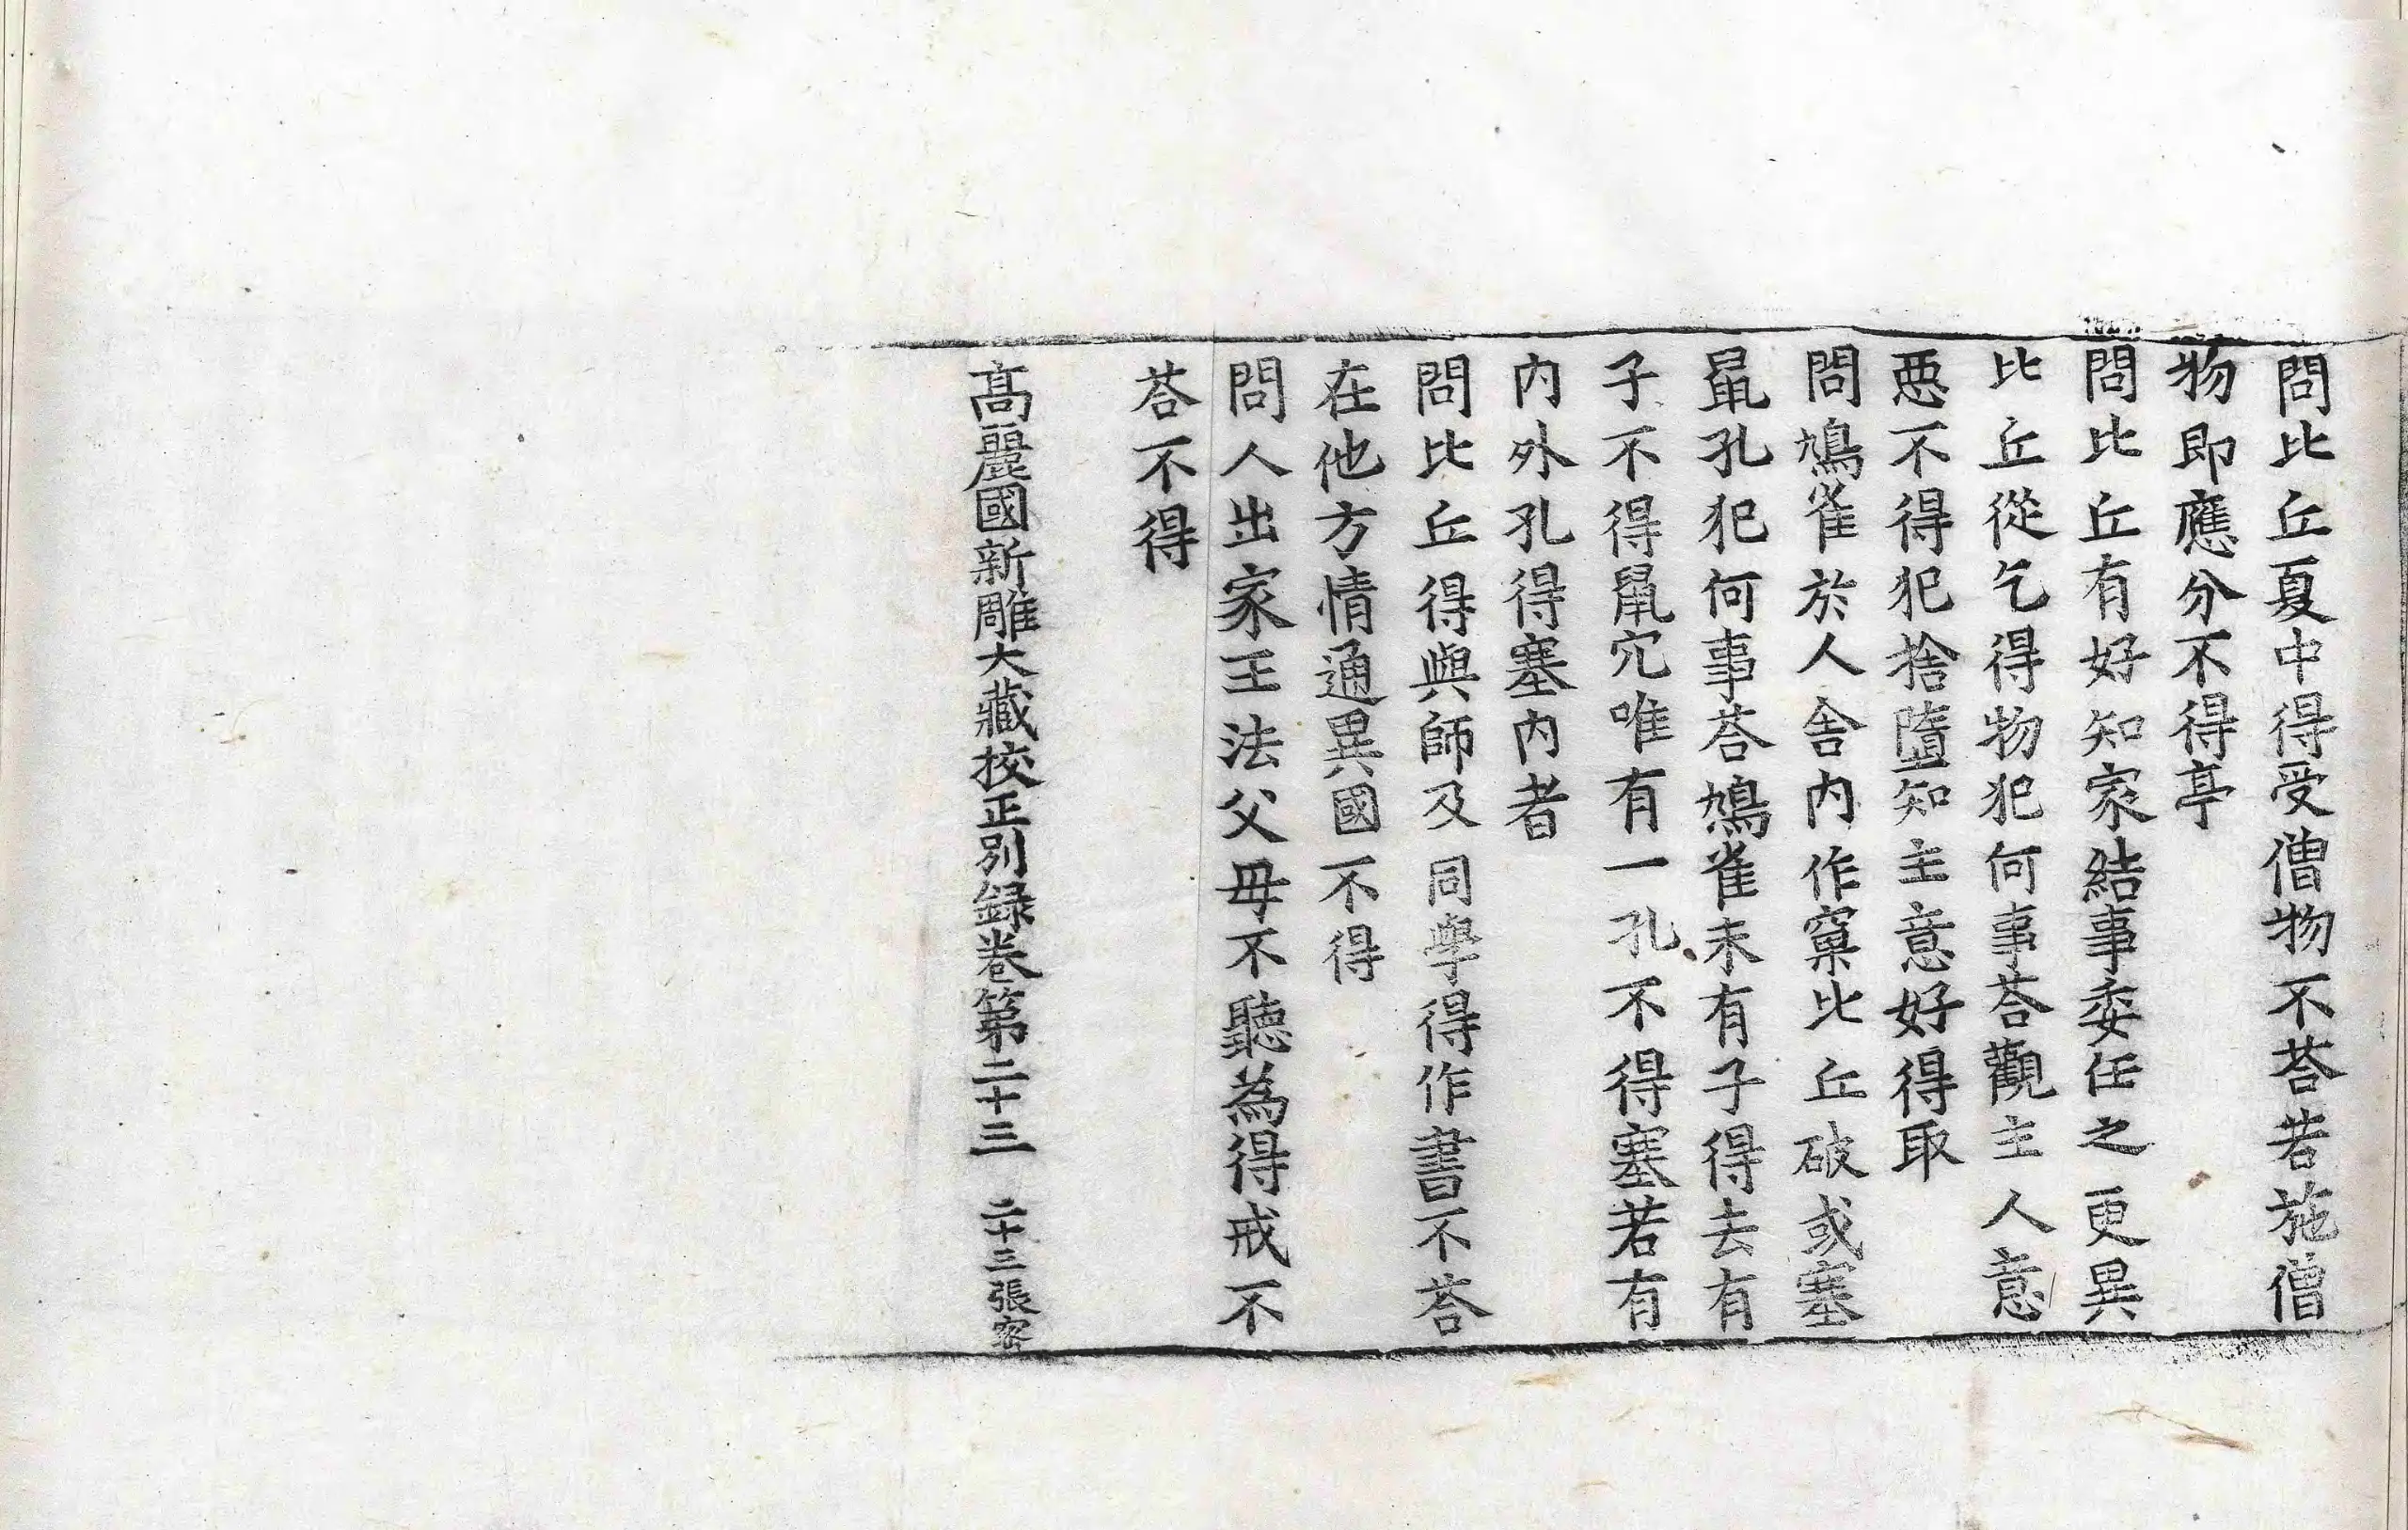 問比丘夏中得受僧物不荅若施僧
物即應分不得亭
問比丘有好知家結事委任之更異
比丘從乞得物犯何事荅觀主人意
惡不得犯捨墮知主意好得取
問鳩雀於人舍內作窠比丘破或塞
鼠孔犯何事荅鳩雀未有子得去有
子不得鼠穴唯有一孔不得塞若有
內外孔得塞內者
問比丘得與師及同學得作書不荅
在他方情通異國不得
問人出家王法父母不聽為得戒不
荅不得
高麗國新雕大藏校正別録卷第二十三 二十三張 容